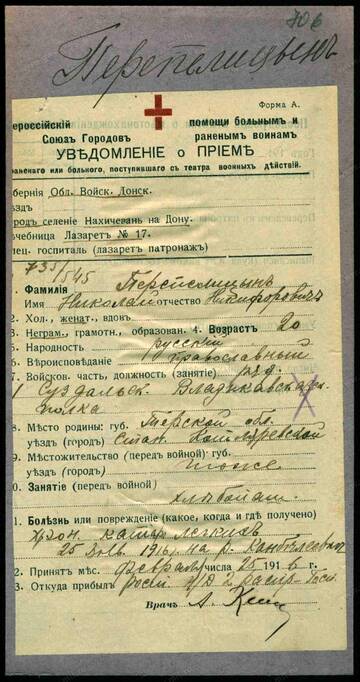 706
Перепелицынъ
Форма А.
ероссійскій помощи больнымъ и
Союзъ Городовъ раненымъ воинамъ
УВѢДОМЛЕНІЕ о ПРІЕМѢ
раненаго или больного, поступившаго съ театра военныхъ дѣйствій.
бернія Обл. Войск. Донск.
ѣздъ
родъ селеніе Нахичевань на Дону.
чебница Лазаретъ № 17.
пец. госпиталь (лазаретъ патронажъ)
735/545
Фамилія Перепелицынъ
Имя Николай отчество Никифоровичъ
2. Хол., женат., вдов.
3. Неграм., грамотн., образован. 4. Возрастъ 20
5. Народность русскій
6. Вѣроисповѣданіе православный
7. Войсков. часть, должность (занятіе) ряд.
1 Суздальск. Владикавказск.
полка
8. Мѣсто родины: губ. Терской обл.
уѣздъ (городъ) Стан.
9. Мѣстожительство (передъ войной) губ.
уѣздъ (городъ) тоже
0. Занятіе (передъ войной)
хлѣбопаш.
1. Болѣзнь или поврежденіе (какое, когда и гдѣ получено)
Хрон. катар. легкихъ
25 1916 г. на р.
2. Принятъ мѣс. февраля 25 1916 г.
3. Откуда прибылъ 2
Врачъ А.